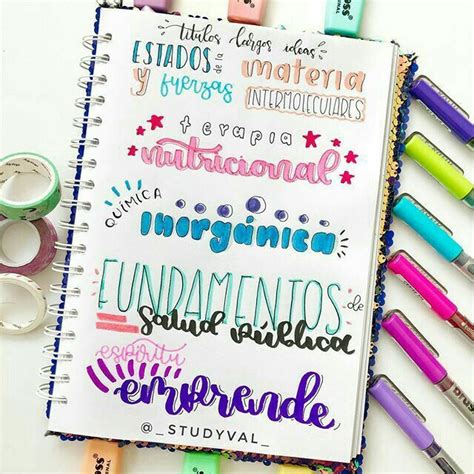 títulos largos ideas
ESTADOS de la materia
y fuerzas INTERMOLECULARES
terapia
nutricional
QUÍMICA
inorgánica
FUNDAMENTOS de
salud pública
espíritu
emprende
@_STUDYVAL_